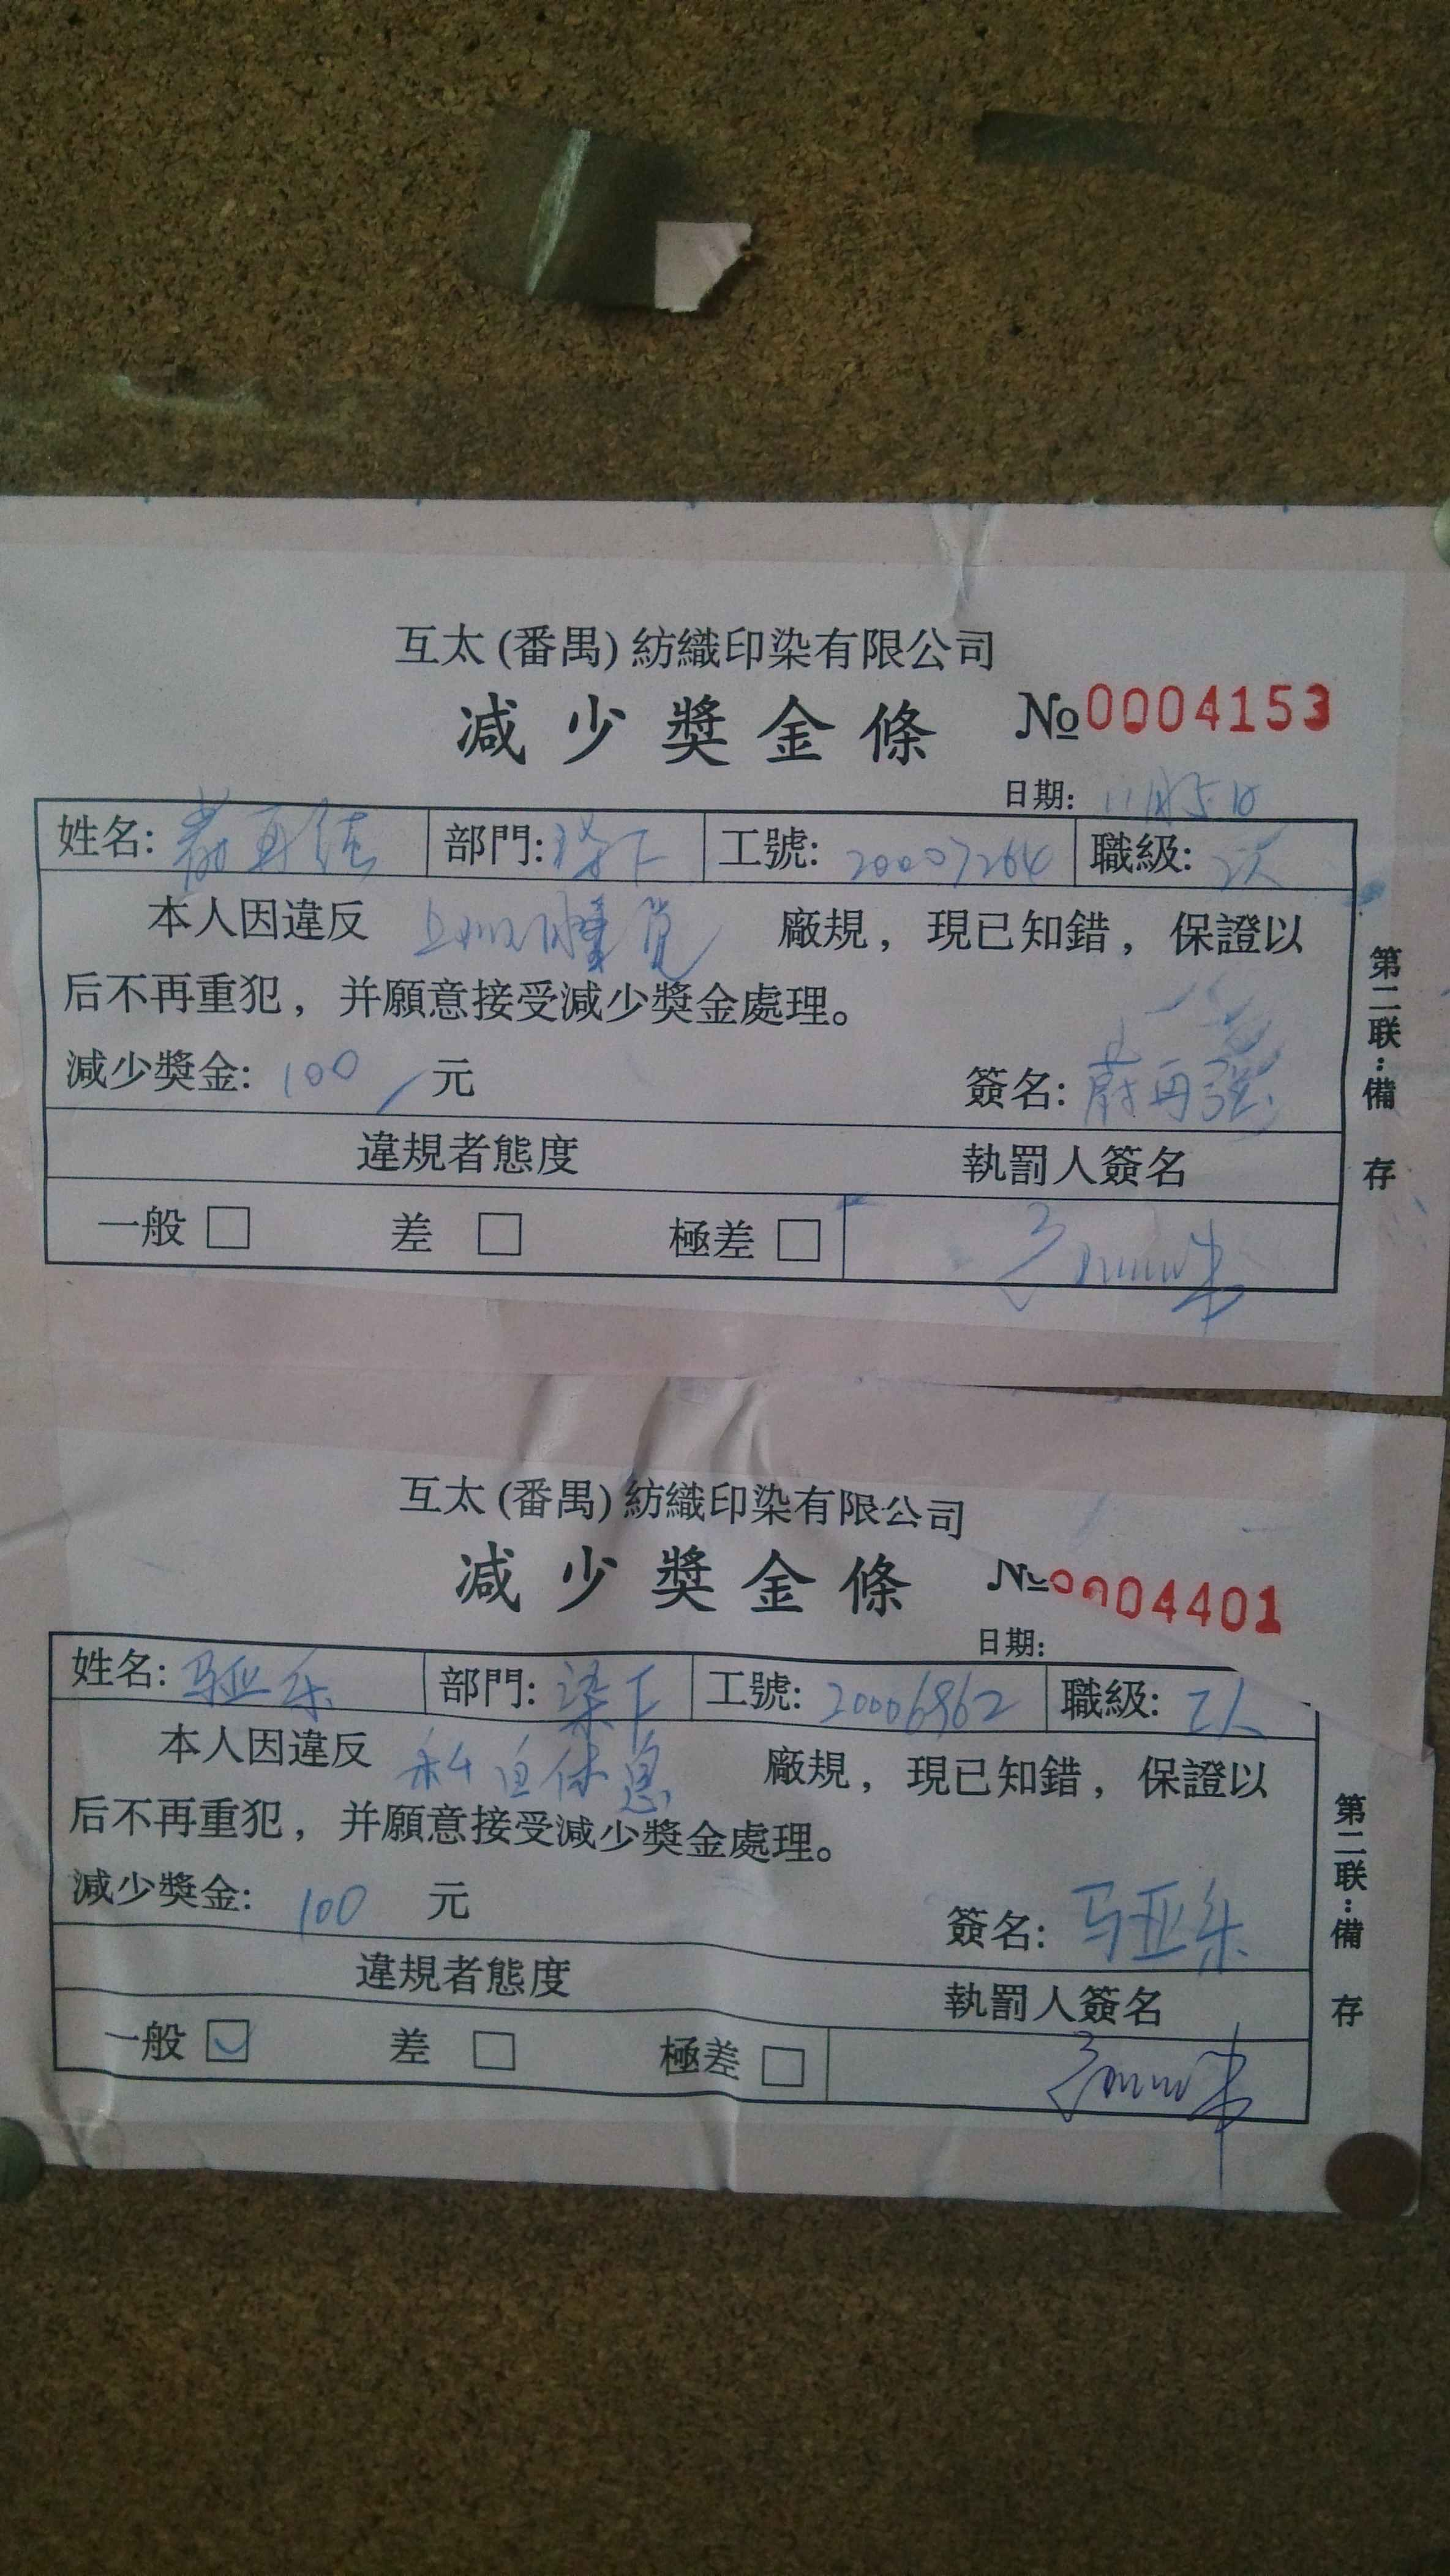 互太(番禺)紡織印染有限公司
减少獎金條 №0004153
日期: 11月5日
姓名: 部門: 染下 工號: 20007264 職級: 工人
本人因違反 上班睡觉 廠規，現已知錯，保證以
后不再重犯，并願意接受減少獎金處理。
減少獎金: 100 元 簽名: 蔚再强
違規者態度 執罰人簽名
一般 □ 差 □ 極差 □
第二联:備 存
互太(番禺)紡織印染有限公司
减少獎金條 №0004401
日期:
姓名: 马亚乐 部門: 染下 工號: 20006962 職級: 工人
本人因違反 私自休息 廠規，現已知錯，保證以
后不再重犯，并願意接受減少獎金處理。
減少獎金: 100 元 簽名: 马亚乐
違規者態度 執罰人簽名
一般 ☑ 差 □ 極差 □
第二联:備 存